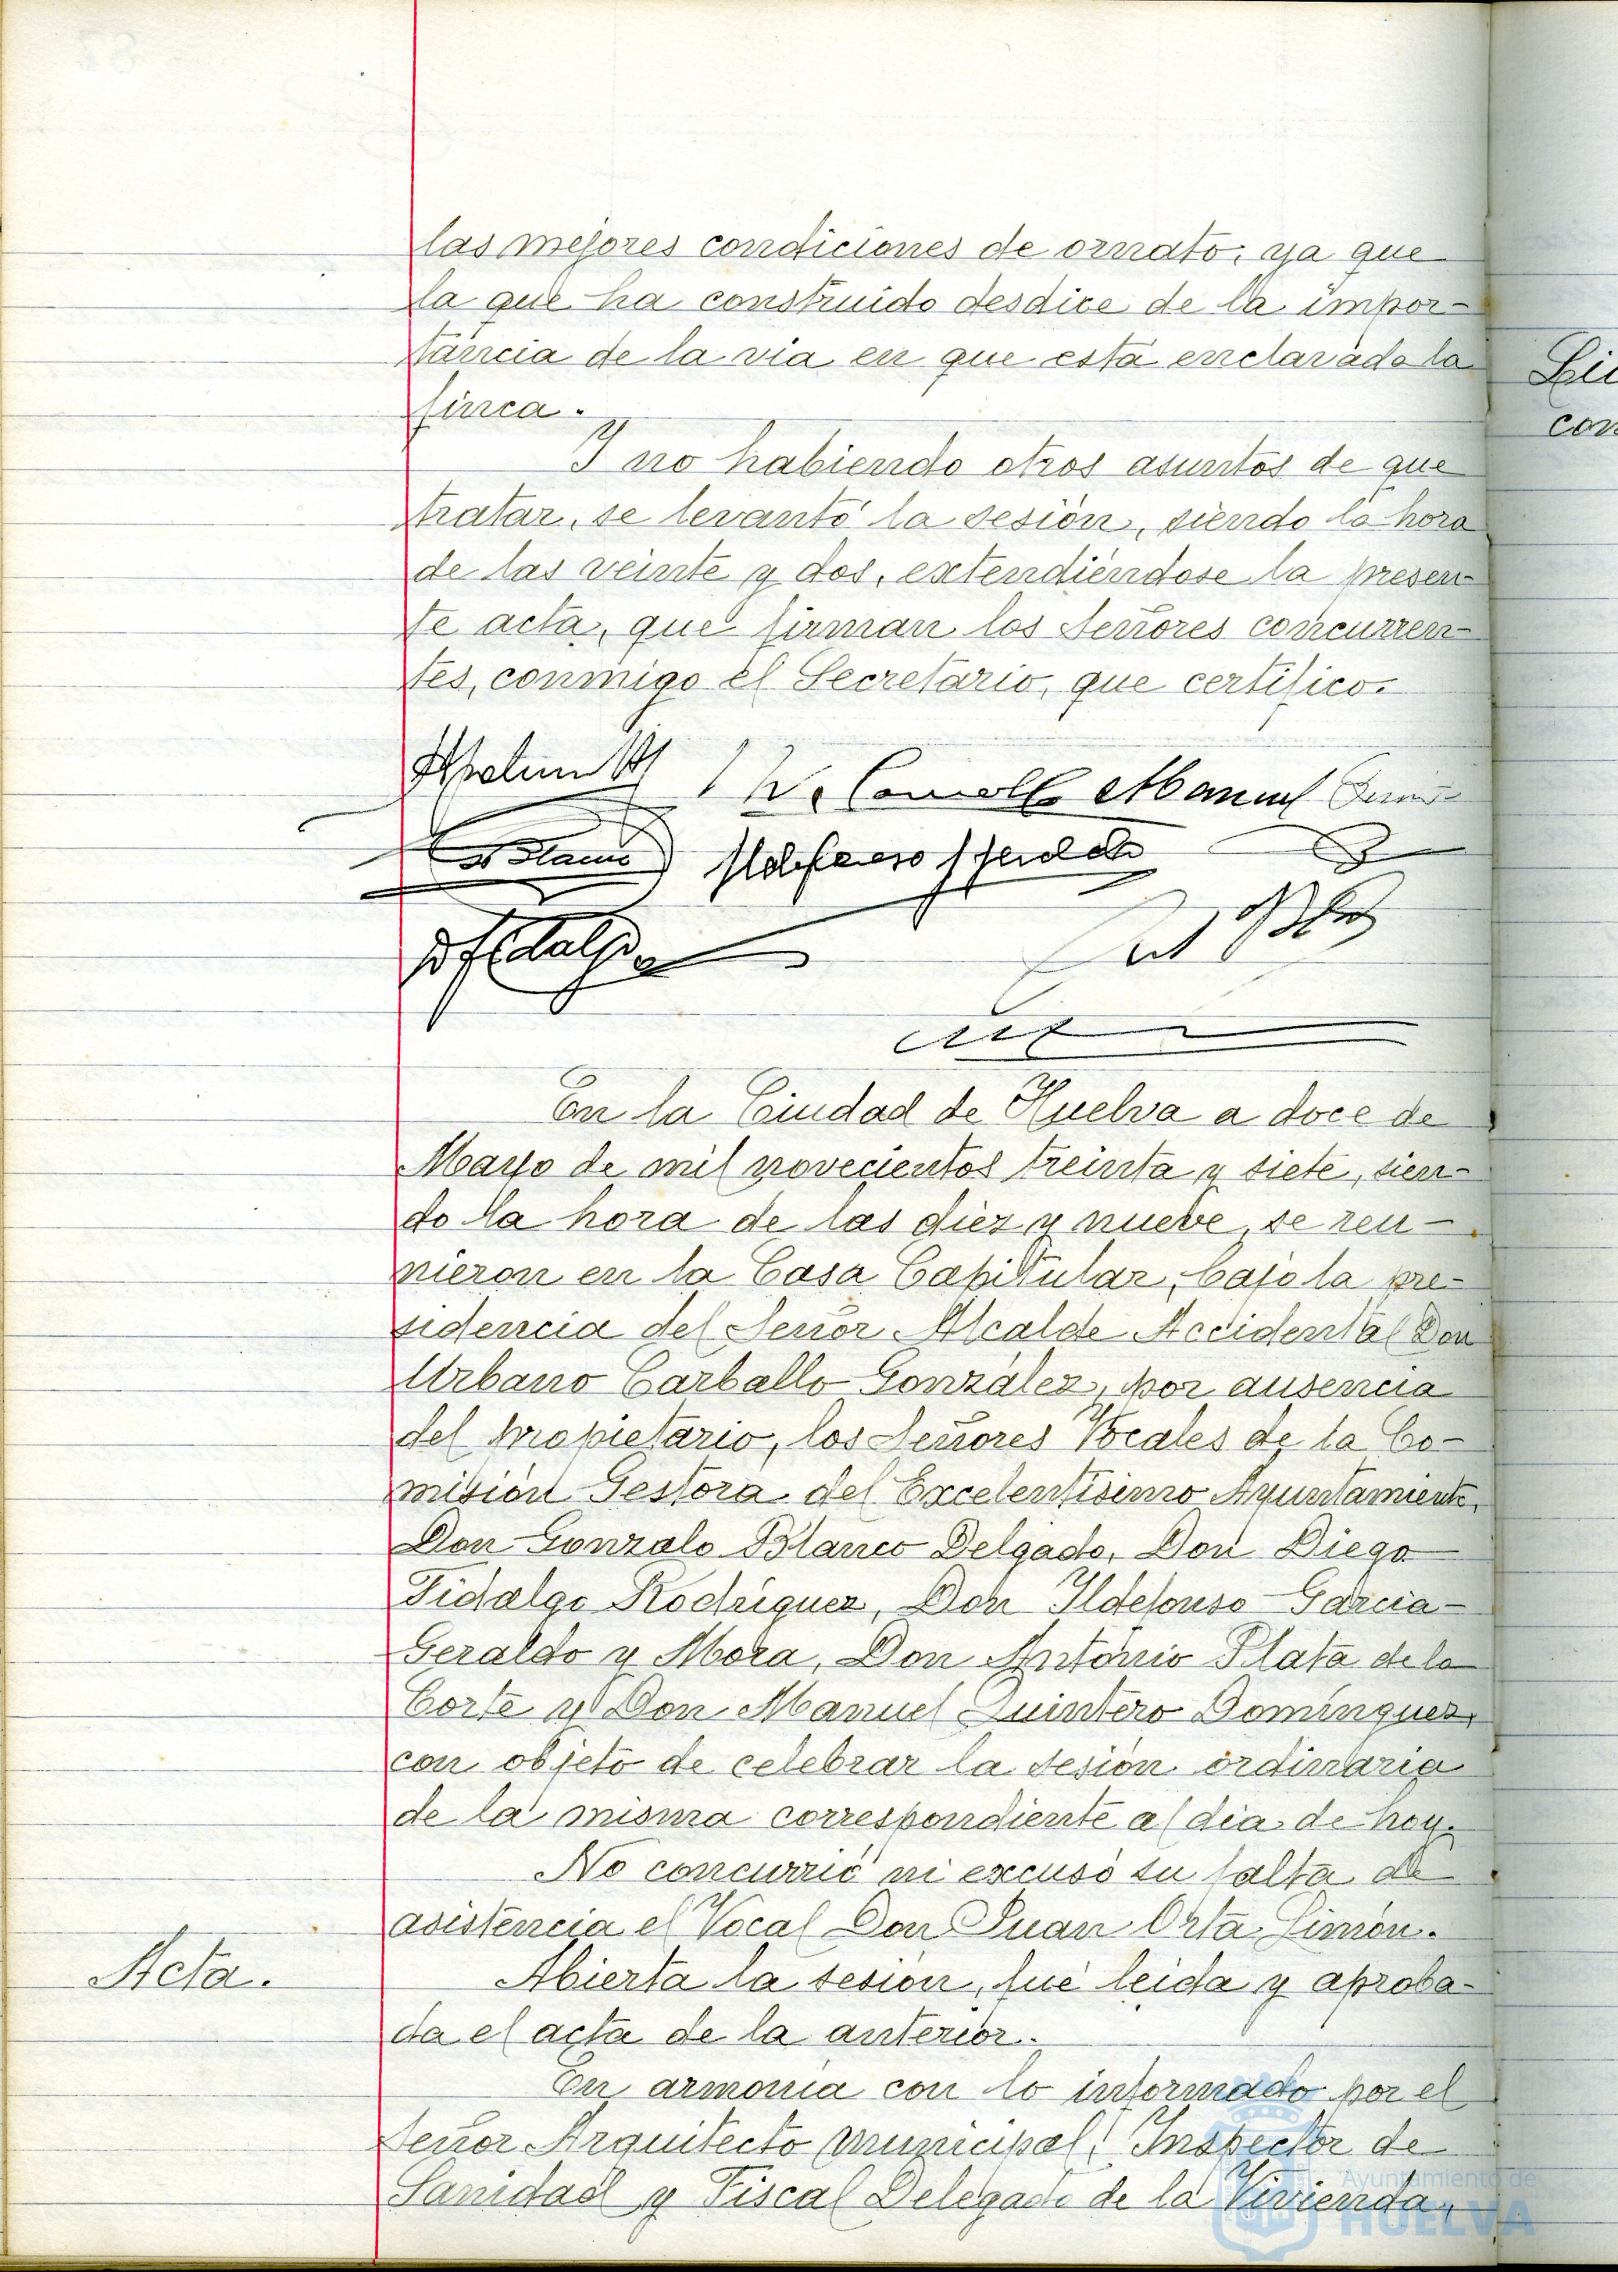 las mejores condiciones de ornato, ya que
la que ha construido desdice de la impor-
tancia de la via en que está enclavada la
finca.
Y no habiendo otros asuntos de que
tratar, se levantó la sesión, siendo la hora
de las veinte y dos, extendiéndose la presen-
te acta, que firman los Señores concurren-
tes, conmigo el Secretario, que certifico.
Manuel
En la Ciudad de Huelva a doce de
Mayo de mil novecientos treinta y siete, sien-
do la hora de las diez y nueve, se reu-
nieron en la Casa Capitular, bajo la pre-
sidencia del Señor Alcalde Accidental Don
Urbano Carballo González, por ausencia
del propietario, los Señores Vocales de la Co-
misión Gestora del Excelentísimo Ayuntamiento,
Don Gonzalo Blanco Delgado, Don Diego
Fidalgo Rodríguez, Don Ildefonso Garcia-
Geraldo y Mora, Don Antonio Plata de la
Corte y Don Manuel Quintero Domínguez,
con objeto de celebrar la sesión ordinaria
de la misma correspondiente al dia de hoy.
No concurrió ni excusó su falta de
asistencia el Vocal Don Juan Orta Limón.
Acta.
Abierta la sesión, fué leida y aproba-
da el acta de la anterior.
En armonia con lo informado por el
Señor Arquitecto municipal, Inspector de
Sanidad y Fiscal Delegado de la Vivienda,
Ayuntamiento de
HUELVA